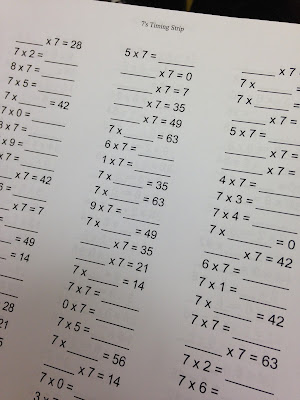 7's Timing Strip
____ x 7 = 28
7 x 2 = ____
8 x 7 = ____
7 x 5 = ____
7 x ____ = 42
7 x 0 = ____
x 7 = ____
x 9 = ____
x 7 = ____
____ x 7 = 42
= ____
____ x 7 = 7
____ = 49
____ = 14
28
21
5 x 7 = ____
____ x 7 = 0
____ x 7 = 7
____ x 7 = 35
____ x 7 = 49
7 x ____ = 63
6 x 7 = ____
1 x 7 = ____
7 x ____ = 35
7 x ____ = 63
9 x 7 = ____
7 x ____ = 49
____ x 7 = 35
____ x 7 = 21
7 x ____ = 14
7 x 7 = ____
0 x 7 = ____
7 x 5 = ____
7 x ____ = 56
____ x 7 = 14
7 x 0 = ____
x 7
____ x 7
7 x ____
7 x ____
____ x 7 =
5 x 7 = ____
____ x 7 =
____ x 7 =
4 x 7 = ____
7 x 3 = ____
7 x 4 = ____
7 x ____ = 0
____ x 7 = 42
6 x 7 = ____
7 x 1 = ____
7 x ____ = 42
7 x 7 = ____
____ x 7 = 63
7 x 2 = ____
7 x 6 = ____